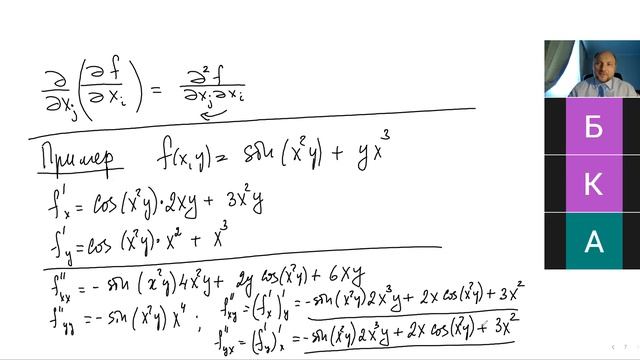 ∂/∂xⱼ (∂f/∂xᵢ) = ∂²f/∂xⱼ∂xᵢ
Пример f(x,y) = sin(x²y) + yx³
f'ₓ = cos(x²y)·2xy + 3x²y
f'ᵧ = cos(x²y)·x² + x³
f''ₓₓ = -sin(x²y)4x²y + 2y cos(x²y) + 6xy
f''ᵧᵧ = -sin(x²y)x⁴; f''ₓᵧ = (f'ₓ)'ᵧ = -sin(x²y)2x³y + 2x cos(x²y) + 3x²
f''ᵧₓ = (f'ᵧ)'ₓ = -sin(x²y)2x³y + 2x cos(x²y) + 3x²
Б
К
А